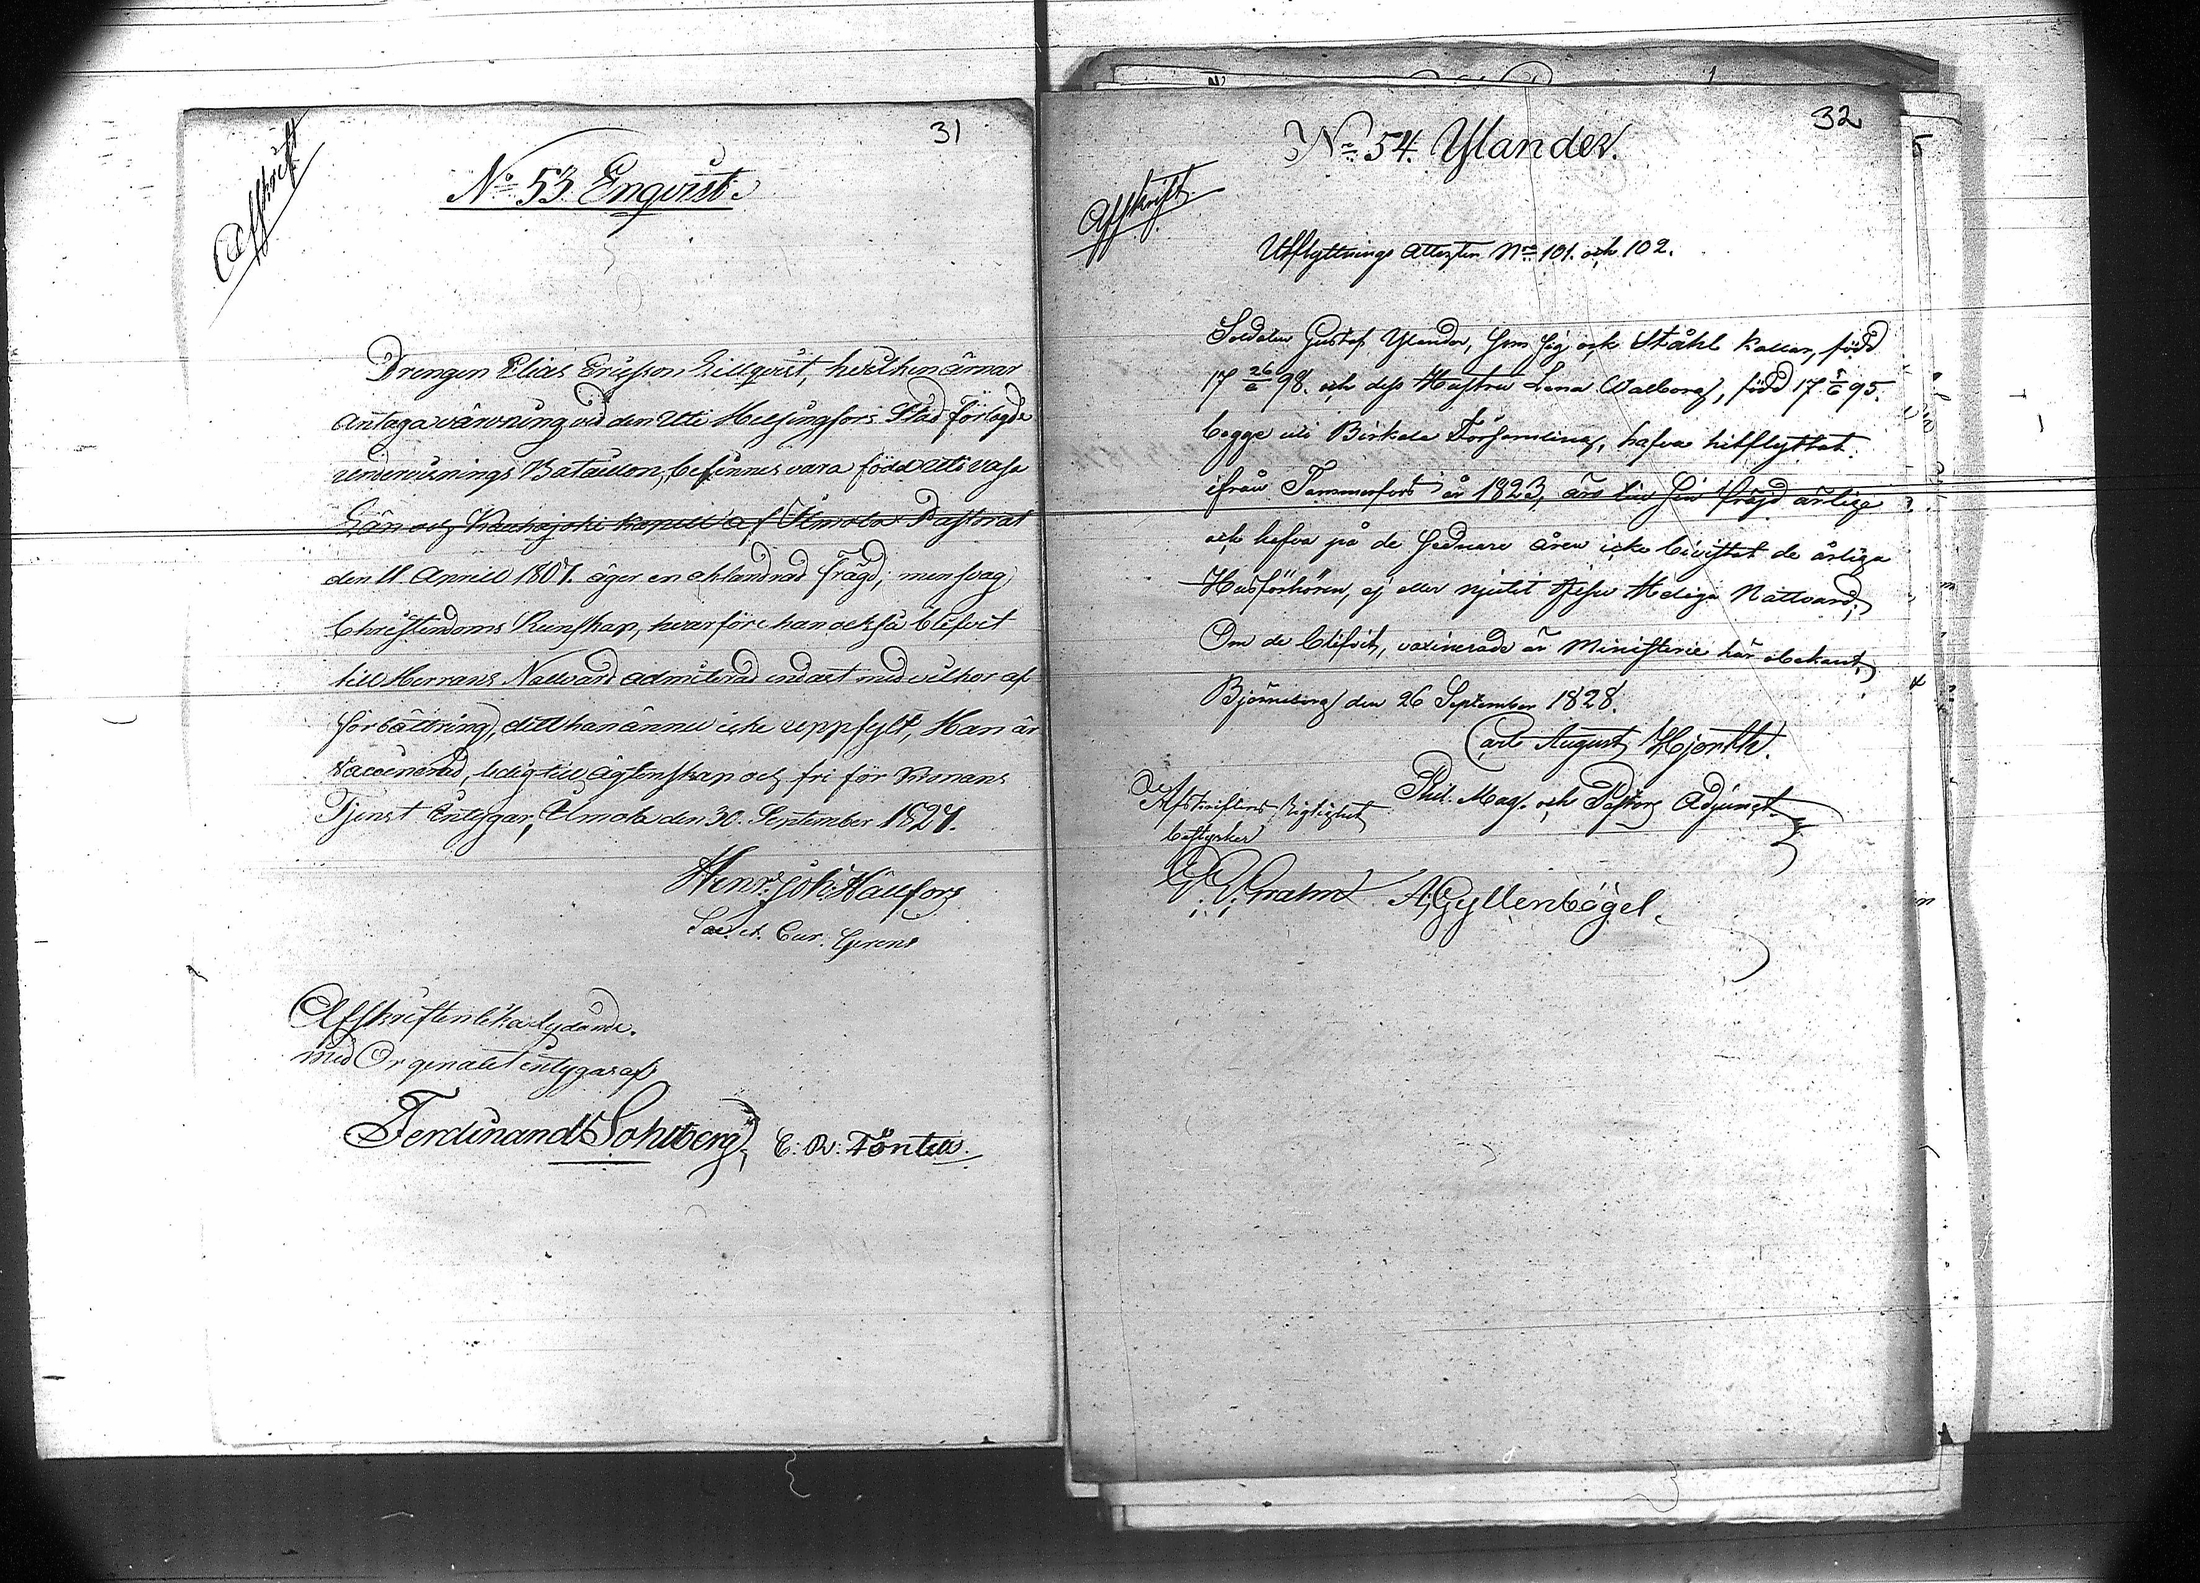 31
Afskrift
No 53. Enqvist.
Drengen Elias Ericsson Lillqvist, hvilken ärnar
antaga värvning vid den uti Helsingfors Stad förlagde
undervisnings Bataillon, befinnes vara född uti Vasa
Län och Kauhajoki kapell af Ilmola Pastorat
den 11 Aprill 1807. äger en oklandrad frägd, men svag
Christendoms Kunskap, hvarföre han också blifvit
till Herrans Nattvard admitterad endast med vilkor af
förbättring, dett han ännu icke uppfylt, Han är
Vaccinerad, ledig till Ägtenskap och fri för Kronans
Tjenst Intygar, Ilmola den 30. September 1827.
Henr. Joh. Hällfors
Sac. et. Cur. Gerens
Afskriften lika lydande
med Orginalet intygas af
Ferdinand Sohlberg, E. R:
32
No 54. Ylander.
Afskrift
Utflyttnings Attesten No 101. och 102.
Soldaten Gustaf Ylander, som sig ock Ståhl kallar, född
17 26/6 98. och dess Hustru Lena Walborg, född 17 95.
begge uti Birkala Församling, hafva hitflyttat
ifrån Tammerfors år 1823, äro till sin frägd ärlige
och hafva på de sednare åren icke bivistat de årliga
Husförhören, ej eller njutit Heliga Nattvard;
Om de blifvit vaxinerade är Ministerie här obekant,
Björneborg den 26 September 1828.
Carl August Hjorth.
Phil. Mag. och Pastors Adjunct.
Afskriftens Rigtighet
bestyrker
A. Gyllenbögel.